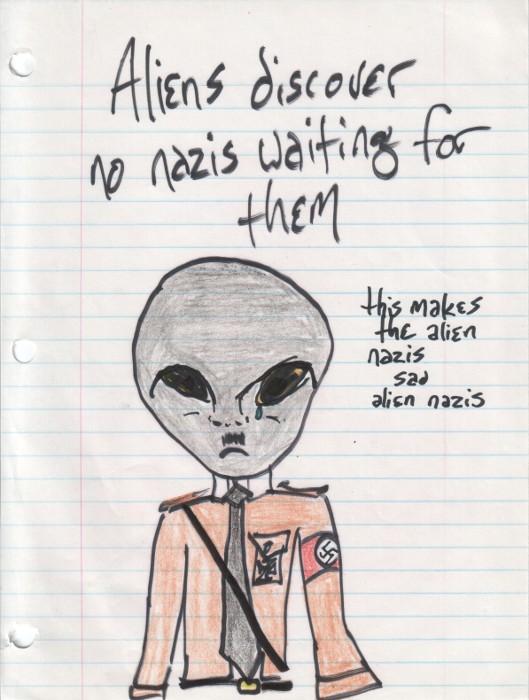 Aliens discover
no nazis waiting for
them
this makes
the alien
nazis
sad
alien nazis